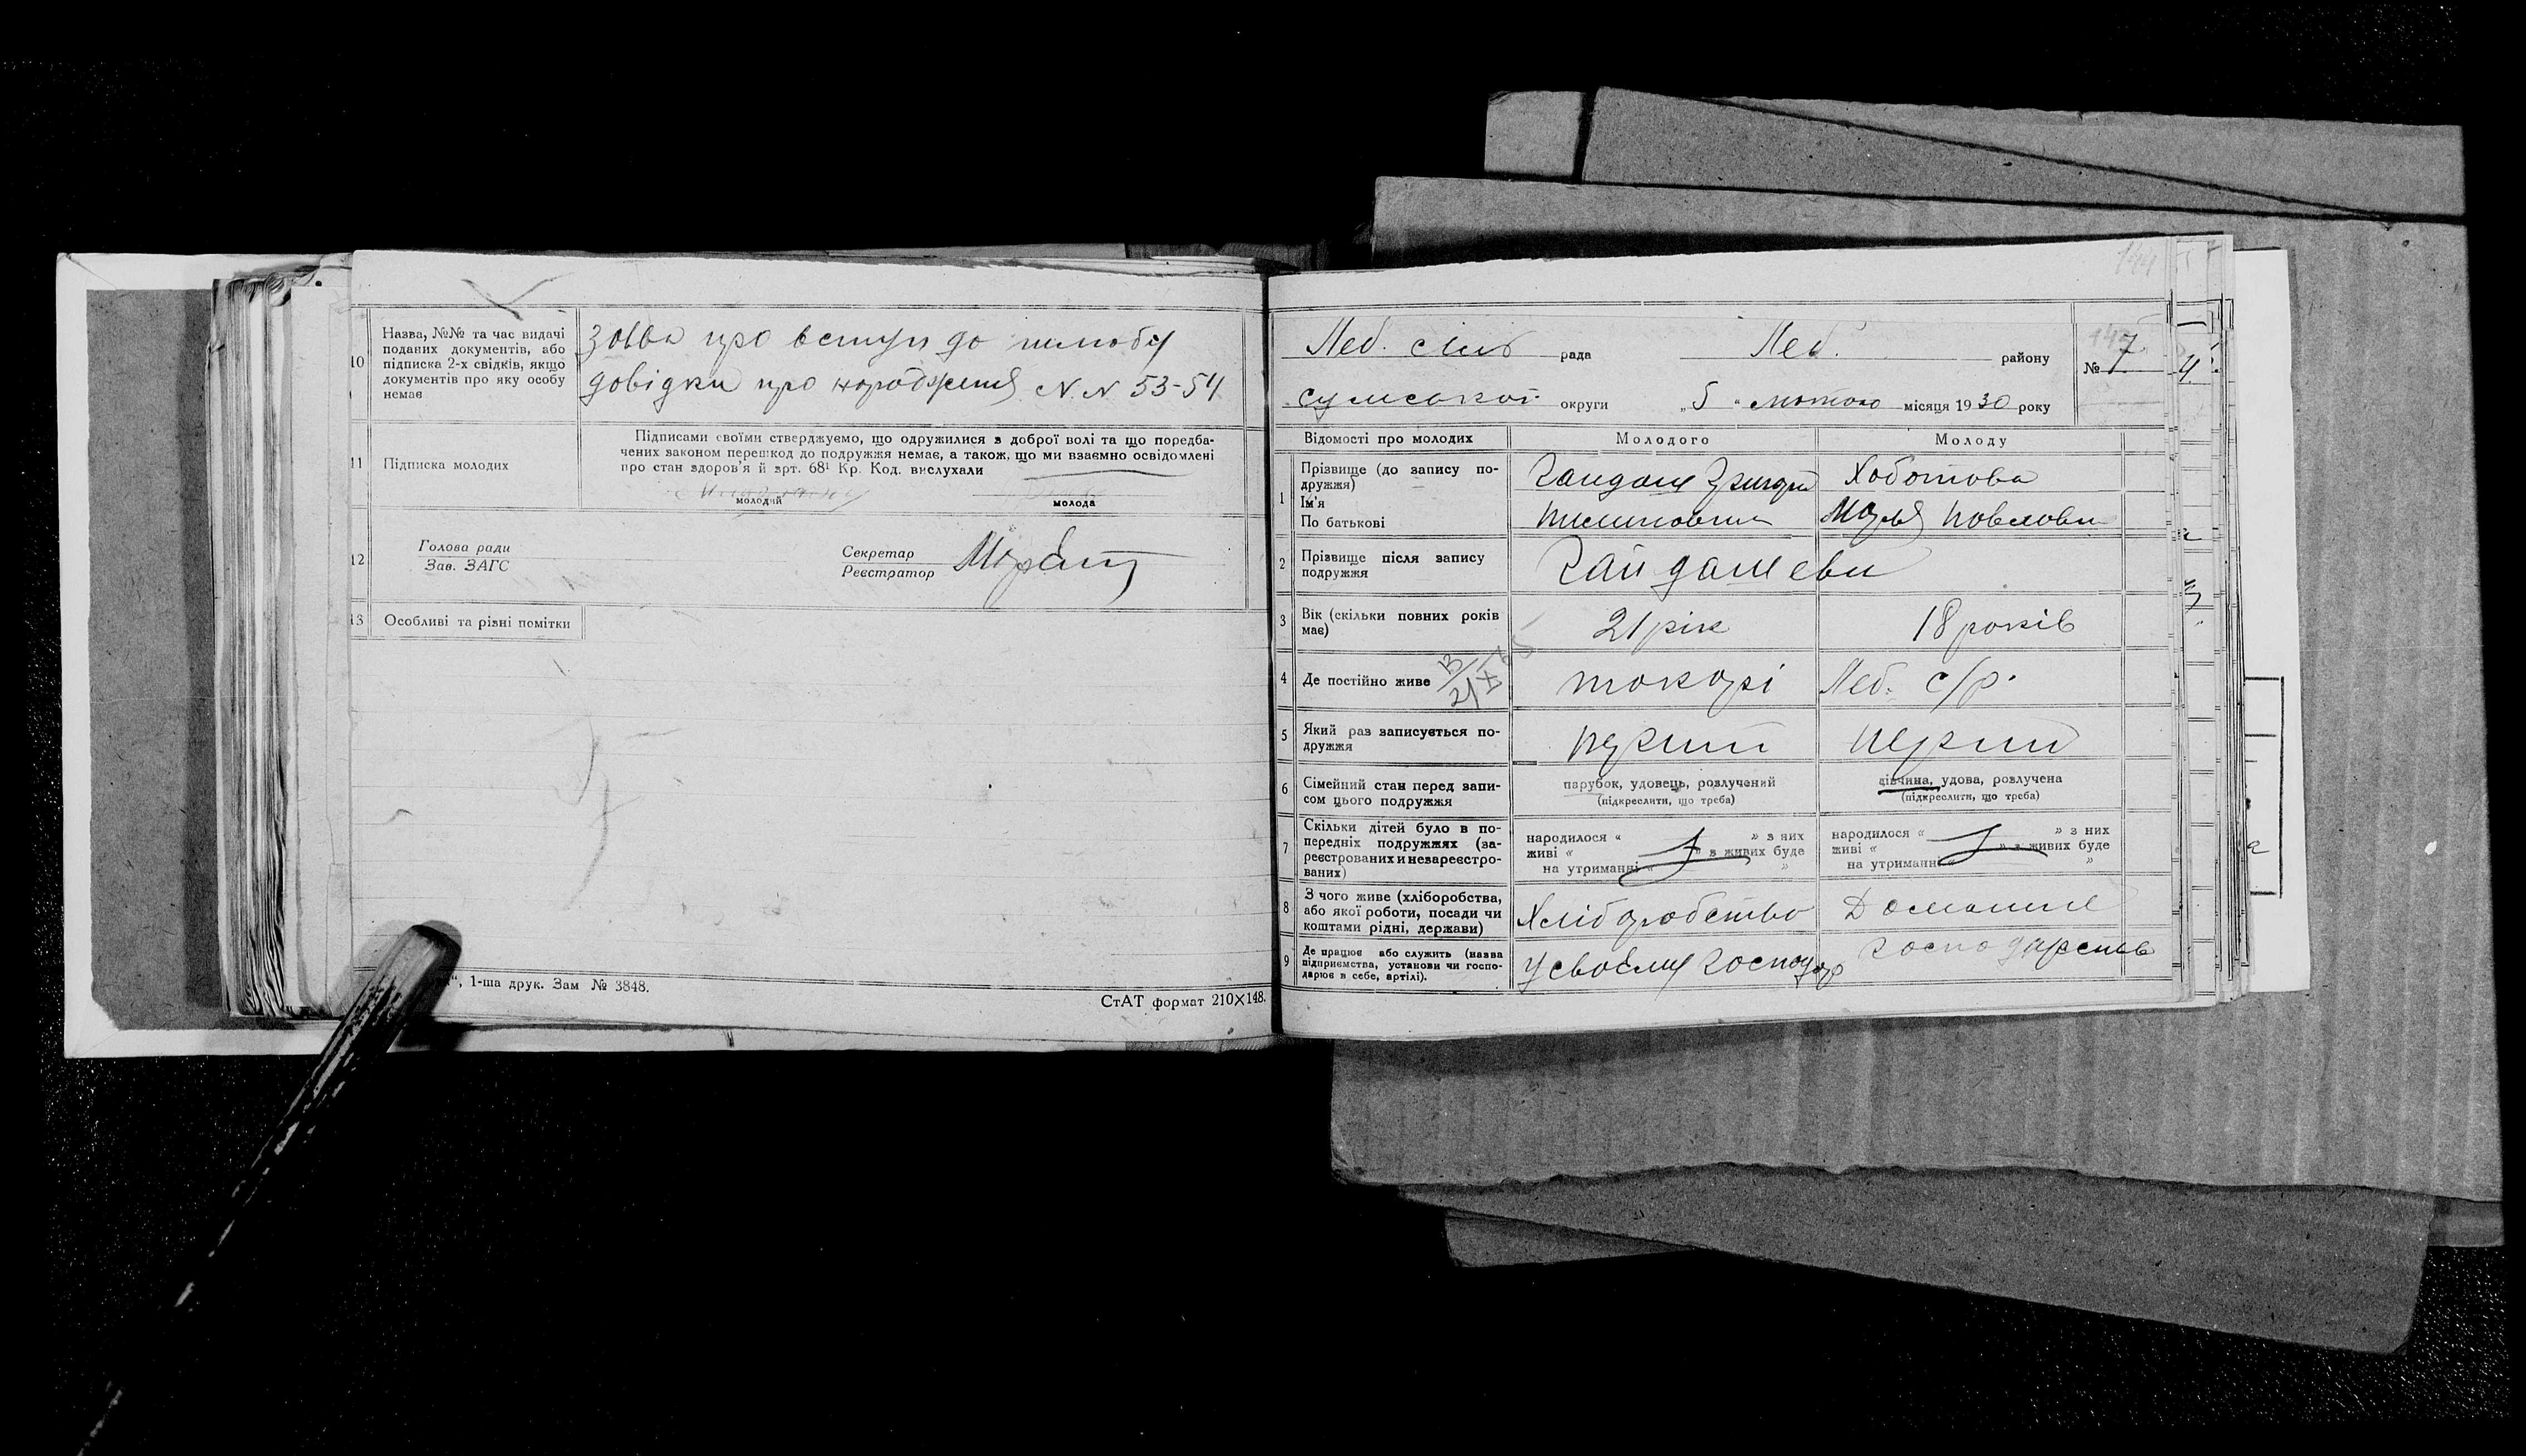 10 Назва, №№ та час видачі
поданих документів, або
підписка 2-х свідків, якщо
документів про яку особу
немає
про вступ до шлюбу
довідки про народження N. N 53-54
11 Підписка молодих
Підписами своїми стверджуємо, що одружилися з доброї волі та що поредба-
чених законом перешкод до подружжя немає, а також, що ми взаємно освідомлені
про стан здоров'я й арт. 68¹ Кр. Код. вислухали
молодий молода
12 Голова ради
Зав. ЗАГС
Секретар
Реєстратор
13 Особливі та різні помітки
", 1-ша друк. Зам № 3848.
СтАТ формат 210×148.
144
Леб. сіль рада Леб. району
№ 7
Сумської округи „5" лютого місяця 1930 року
Відомості про молодих Молодого Молоду
1 Прізвище (до запису по-
дружжя)
Ім'я
По батькові
Гайдаш
Хоботова
Павлова
2 Прізвище після запису
подружжя
Гайдашеви
3 Вік (скільки повних років
має)
21 рік 18 років
4 Де постійно живе
токарі Леб. с/р.
5 Який раз записується по-
дружжя
перший перший
6 Сімейний стан перед запи-
сом цього подружжя
парубок, удовець, розлучений
(підкреслити, що треба)
дівчина, удова, розлучена
(підкреслити, що треба)
7 Скільки дітей було в по-
передніх подружжях (за-
реєстрованих и незареєстро-
ваних)
народилося « » з них
живі « » з живих буде
на утриманні « »
народилося « » з них
живі « » з живих буде
на утриманні « »
8 З чого живе (хліборобства,
або якої роботи, посади чи
коштами рідні, держави)
Хліборобство Домашнє
9 Де працює або служить (назва
підприємства, установи чи госпо-
дарює в себе, артілі).
У своєму господар
господарств